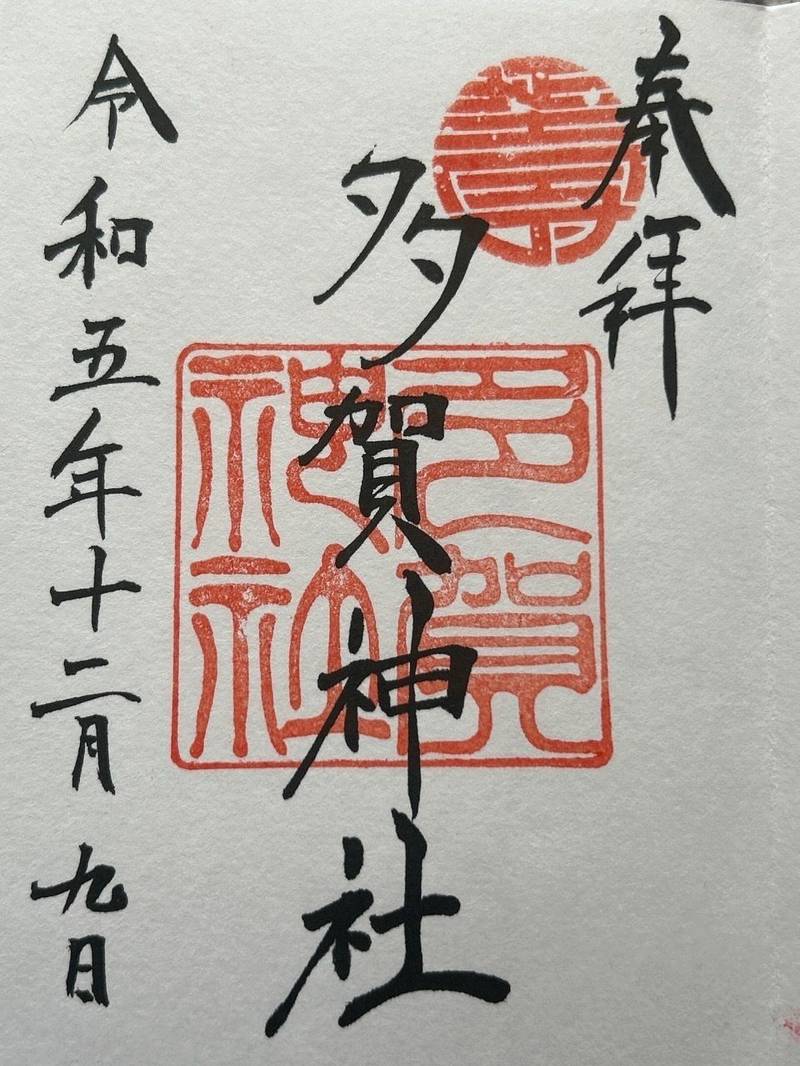 奉拝
多賀神社
令和五年十二月九日
多賀
神社